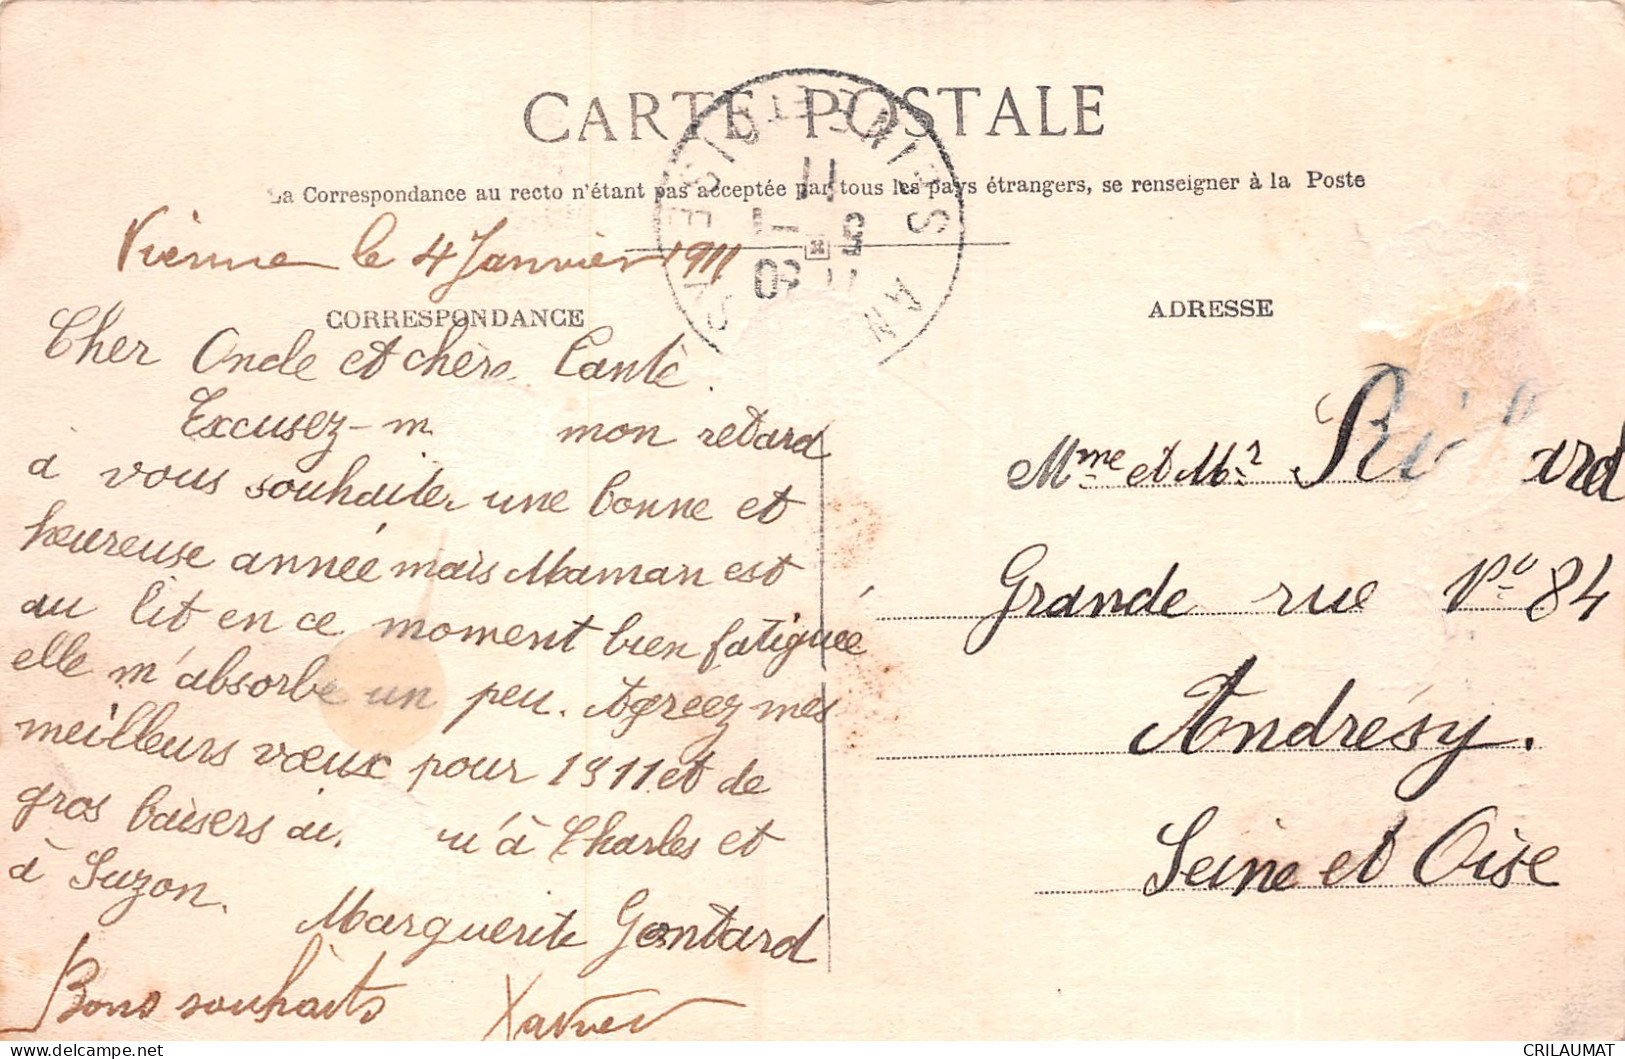 CARTE POSTALE
La Correspondance au recto n'étant pas acceptée par tous les pays étrangers, se renseigner à la Poste
Vienne le 4 Janvier 1911
CORRESPONDANCE
Cher Oncle et chère Tante.
Excusez-m mon retard
à vous souhaiter une bonne et
heureuse année mais Maman est
au lit en ce moment bien fatiguée
elle m'absorbe un peu. Agréez mes
meilleurs vœux pour 1911 et de
gros baisers ai u'à Charles et
à Suzon.
Marguerite Gontard
Bons souhaits Xavier
11
5 -1
30
SEINE-ET-OISE
ADRESSE
Mme et Mr
Grande rue No 84
Andrésy.
Seine et Oise
CRILAUMAT